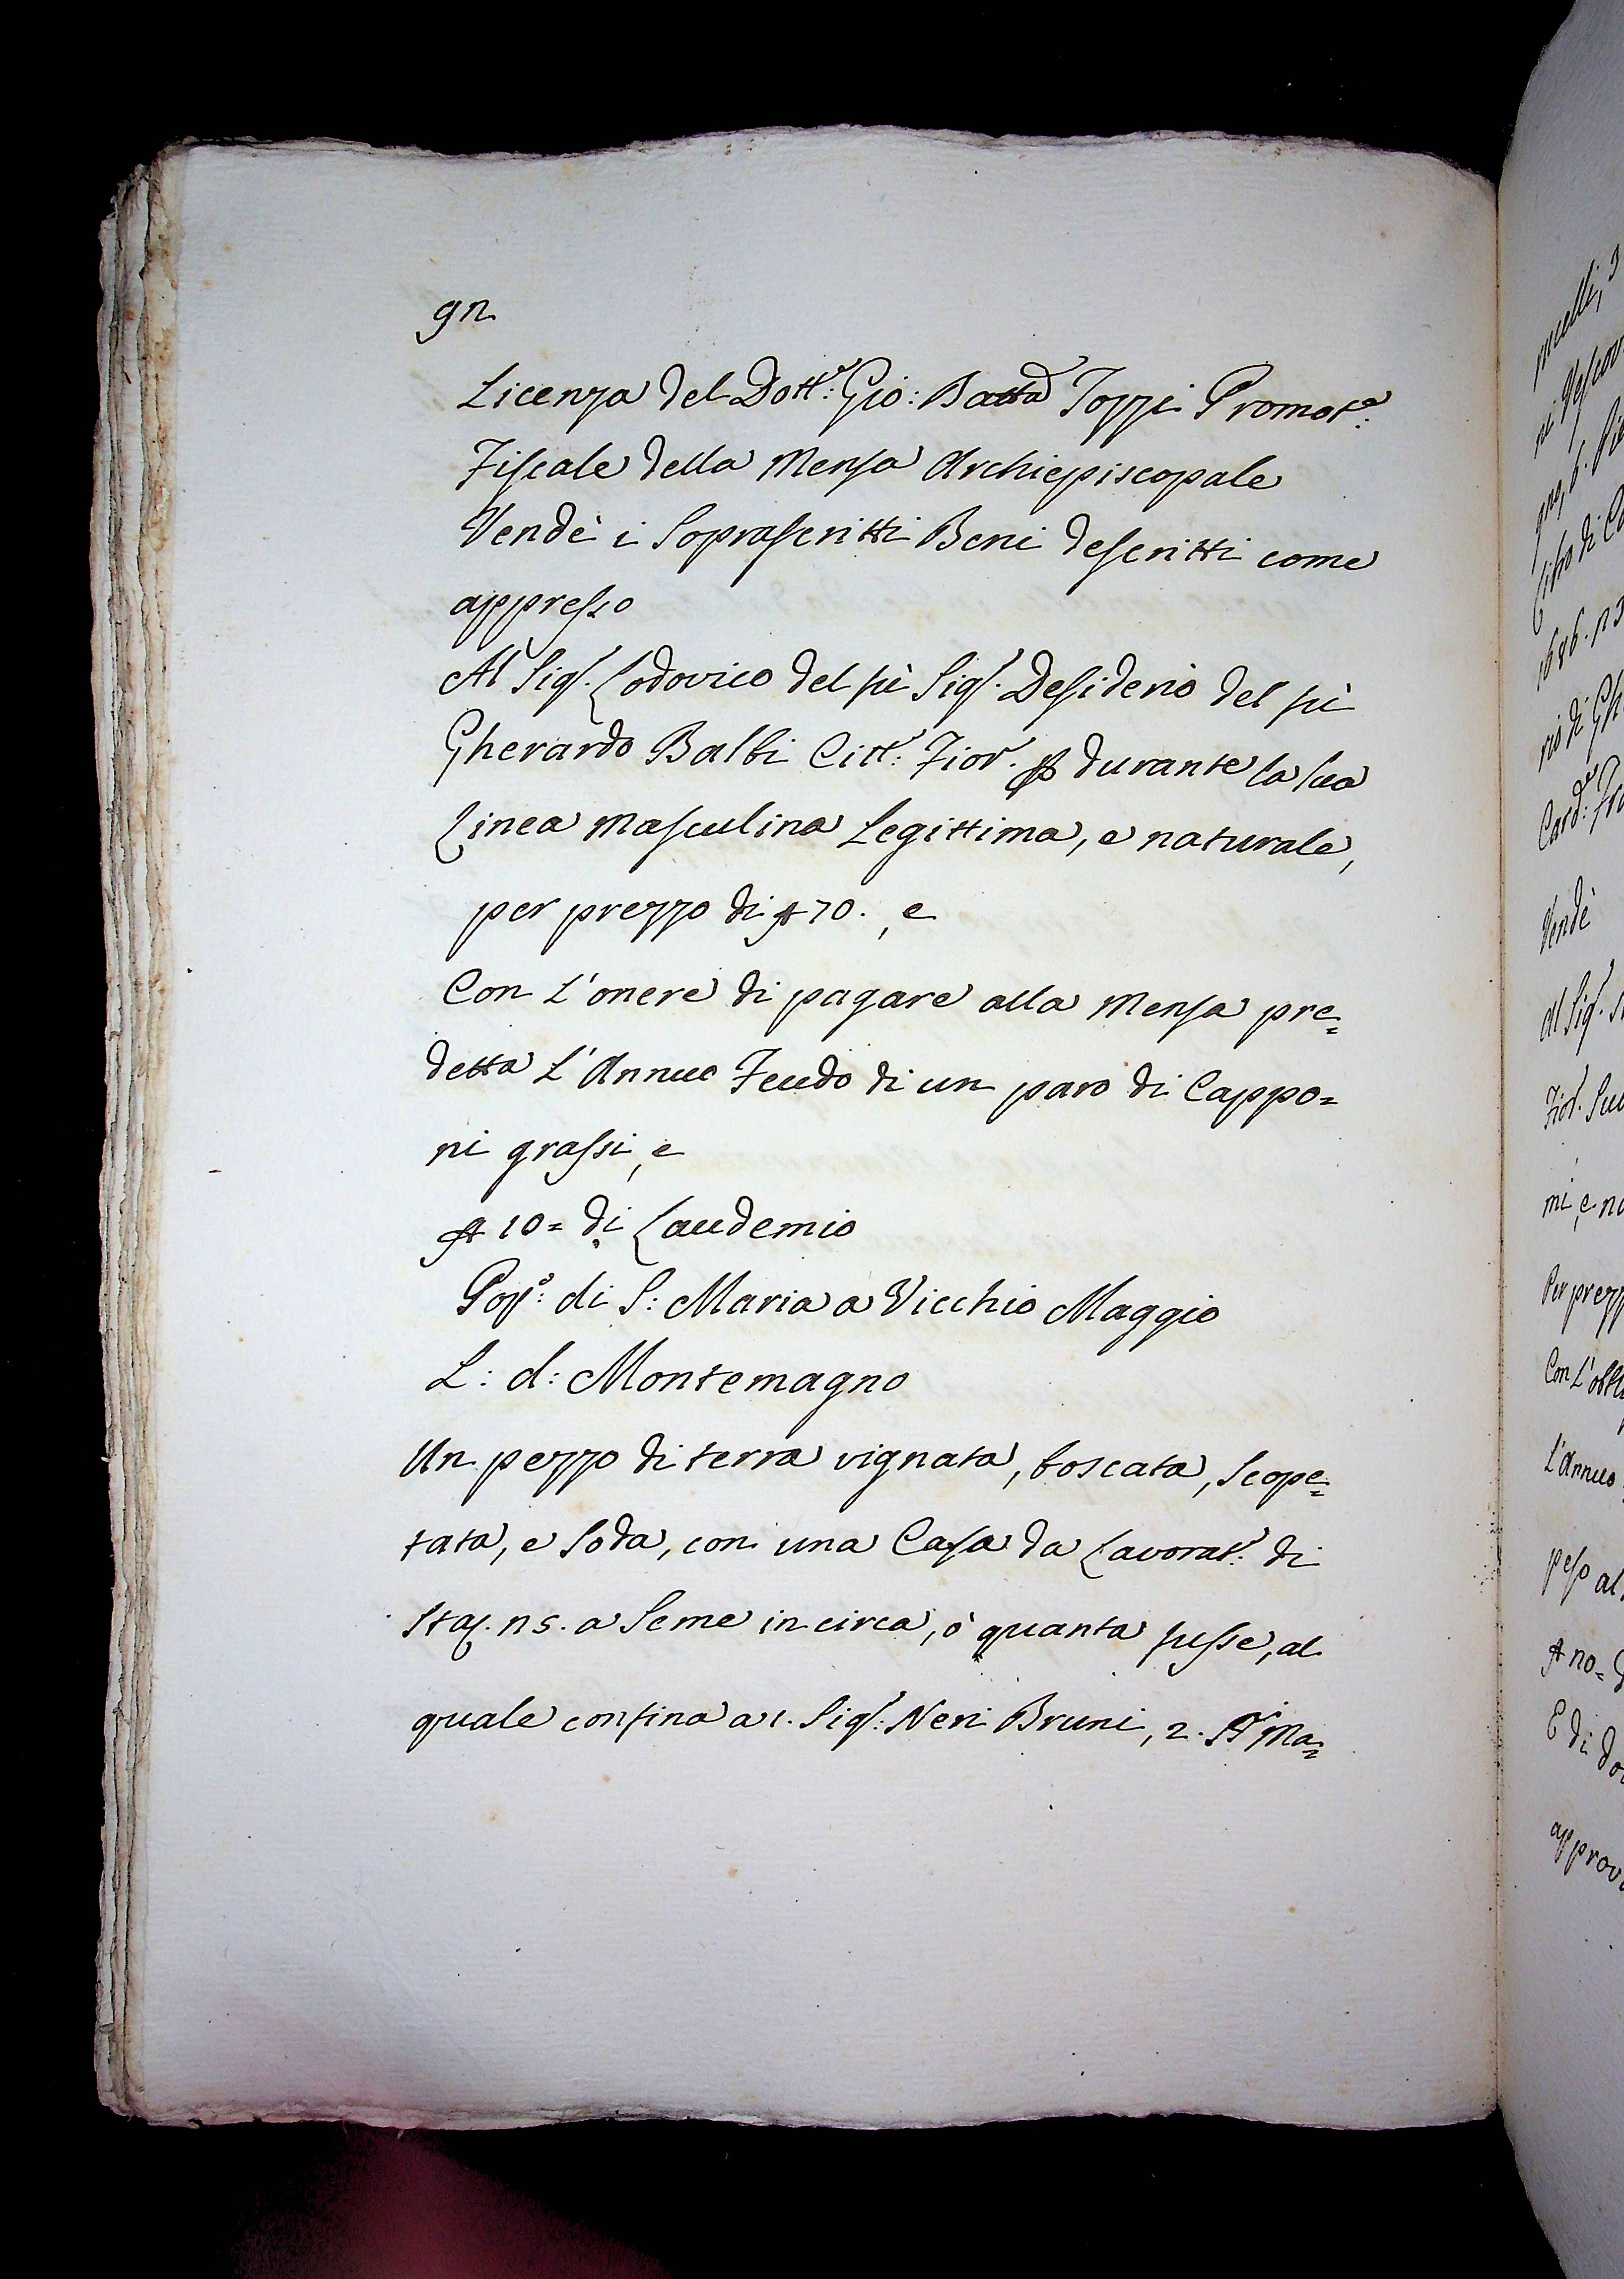 92
Licenza del Dott.r Gio: Batta Tozzi Promot.e
Fiscale della Mensa Archiepiscopale
Vendè i Soprascritti Beni descritti come
appresso
Al Sig.r Lodovico del fù Sig.r Desiderio del fù
Gherardo Balbi Citt.o Fior.o durante la sua
Linea Masculina Legittima, e naturale,
per prezzo di 70. , e
Con L'onere di pagare alla Mensa pre=
detta L'Annuo Feudo di un paro di Cappo=
ni grassi, e
10= di Laudemio
Pop.o: di S: Maria a Vicchio Maggio
L: d: Montemagno
Un pezzo di terra vignata, boscata, Scope=
tata, e Soda, con una Casa da Lavorat.e di
Sta. 25. a Seme in circa, ò quanta fusse, al
quale confina a 1. Sig.r: Neri Bruni, 2. Ma=
mi, e
Vendè
Per prezz
Con L'obbl
L'Annuo
peso al
E di
approv